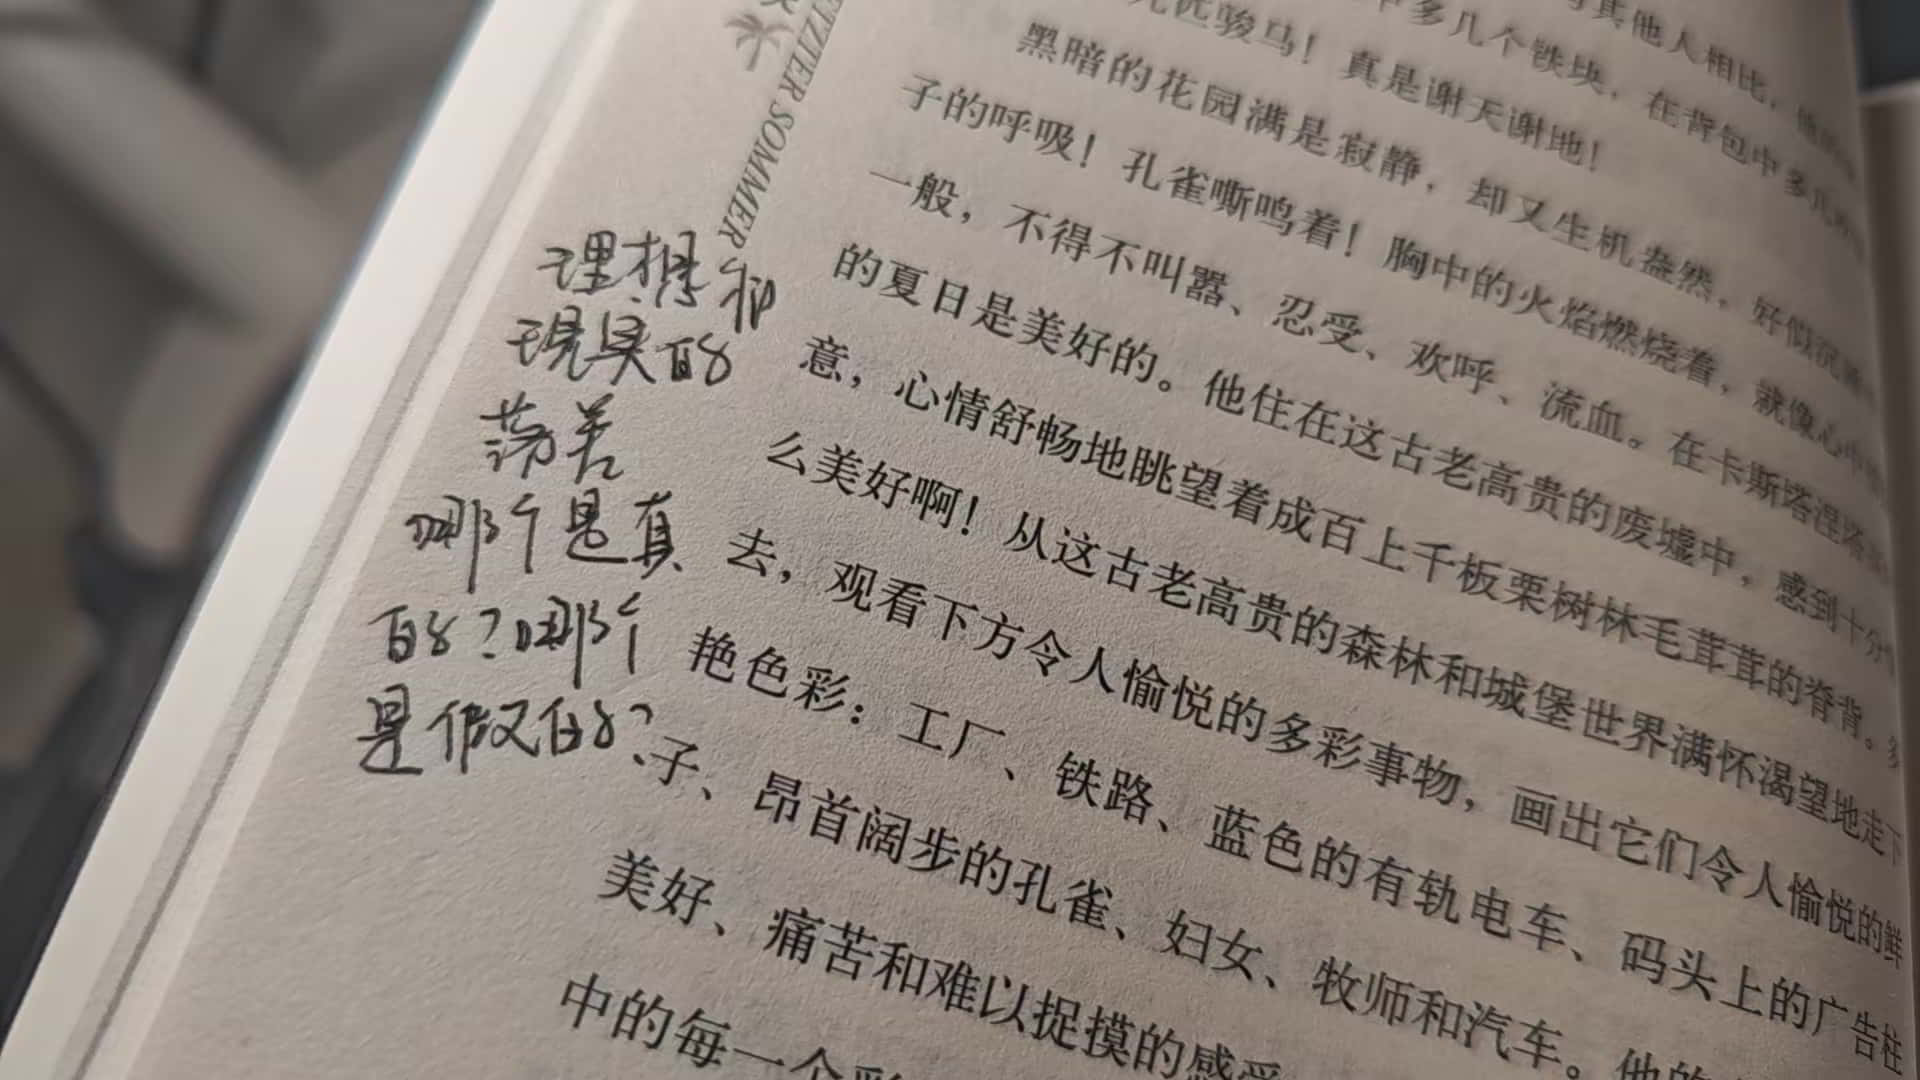 其他人相比，
中多几个铁块，在背包中多几
匹骏马！真是谢天谢地！
黑暗的花园满是寂静，却又生机盎然，好似沉睡
子的呼吸！孔雀嘶鸣着！胸中的火焰燃烧着，就像心中
一般，不得不叫嚣、忍受、欢呼、流血。在卡斯塔涅塔
的夏日是美好的。他住在这古老高贵的废墟中，感到十分
意，心情舒畅地眺望着成百上千板栗树林毛茸茸的脊背。多
么美好啊！从这古老高贵的森林和城堡世界满怀渴望地走下
去，观看下方令人愉悦的多彩事物，画出它们令人愉悦的鲜
艳色彩：工厂、铁路、蓝色的有轨电车、码头上的广告柱
子、昂首阔步的孔雀、妇女、牧师和汽车。他的
美好、痛苦和难以捉摸的感受
中的每一个彩
SOMMER
理想和
现实的
落差
哪个是真
的？哪个
是假的？